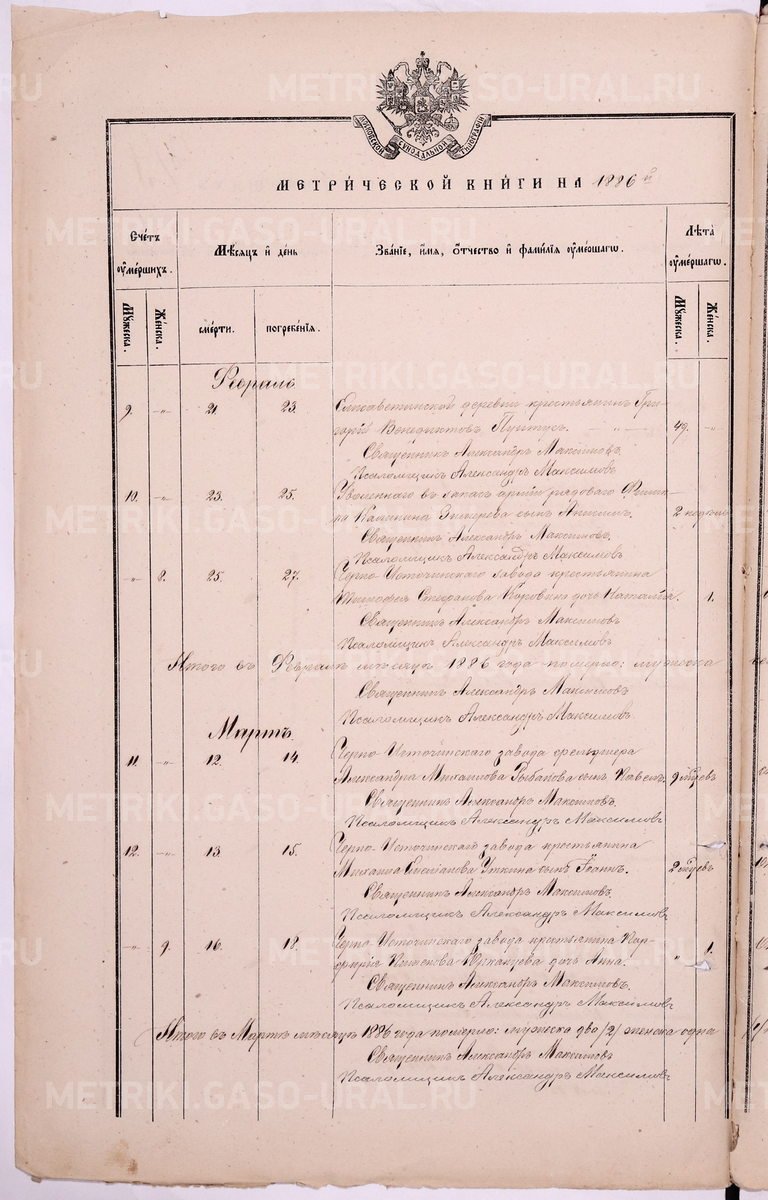 МЕТРИЧЕСКОЙ КНИГИ НА 1886 й
Счетъ умершихъ.
Мѣсяцъ и день
Званіе, имя, отчество и фамилія умершаго.
Лѣта умершаго.
Мужеска. Женска. смерти. погребенія. Мужеска. Женска.
Февраль
9. -"- 21. 23. Елисаветинской деревни крестьянинъ Гри-
горій Венедиктовъ -"- 49. -"-
Священникъ Александръ Максимовъ.
Псаломщикъ Александръ Максимовъ
10. -"- 23. 25. Уволеннаго въ запасъ арміи рядоваго
сынъ 2 недѣль
Священникъ Александръ Максимовъ.
Псаломщикъ Александръ Максимовъ
" 8. 25. 27. Черно-Источинскаго завода крестьянина
Тимофея Стефанова дочь Наталія. 1.
Священникъ Александръ Максимовъ
Псаломщикъ Александръ Максимовъ
Итого въ Февралѣ мѣсяцѣ 1886 года померло: мужеска
Священникъ Александръ Максимовъ
Псаломщикъ Александръ Максимовъ.
Мартъ.
11. -"- 12. 14. Черно-Источинскаго завода
Александра Михаилова сынъ Павелъ. 9 мѣсяцевъ
Священникъ Александръ Максимовъ.
Псаломщикъ Александръ Максимовъ
12. -"- 13. 15. Черно-Источинскаго завода крестьянина
Михаила Уткина сынъ Іоаннъ. 2 мѣсяцевъ
Священникъ Александръ Максимовъ.
Псаломщикъ Александръ Максимовъ
-"- 9. 16. 18. Черно-Источинскаго завода крестьянина Пор-
фирія дочь Анна. " 1.
Священникъ Александръ Максимовъ.
Псаломщикъ Александръ Максимовъ
Итого въ Мартѣ мѣсяцѣ 1886 года померло: мужеска два /2/ женска одна
Священникъ Александръ Максимовъ
Псаломщикъ Александръ Максимовъ
METRIKI.GASO-URAL.RU